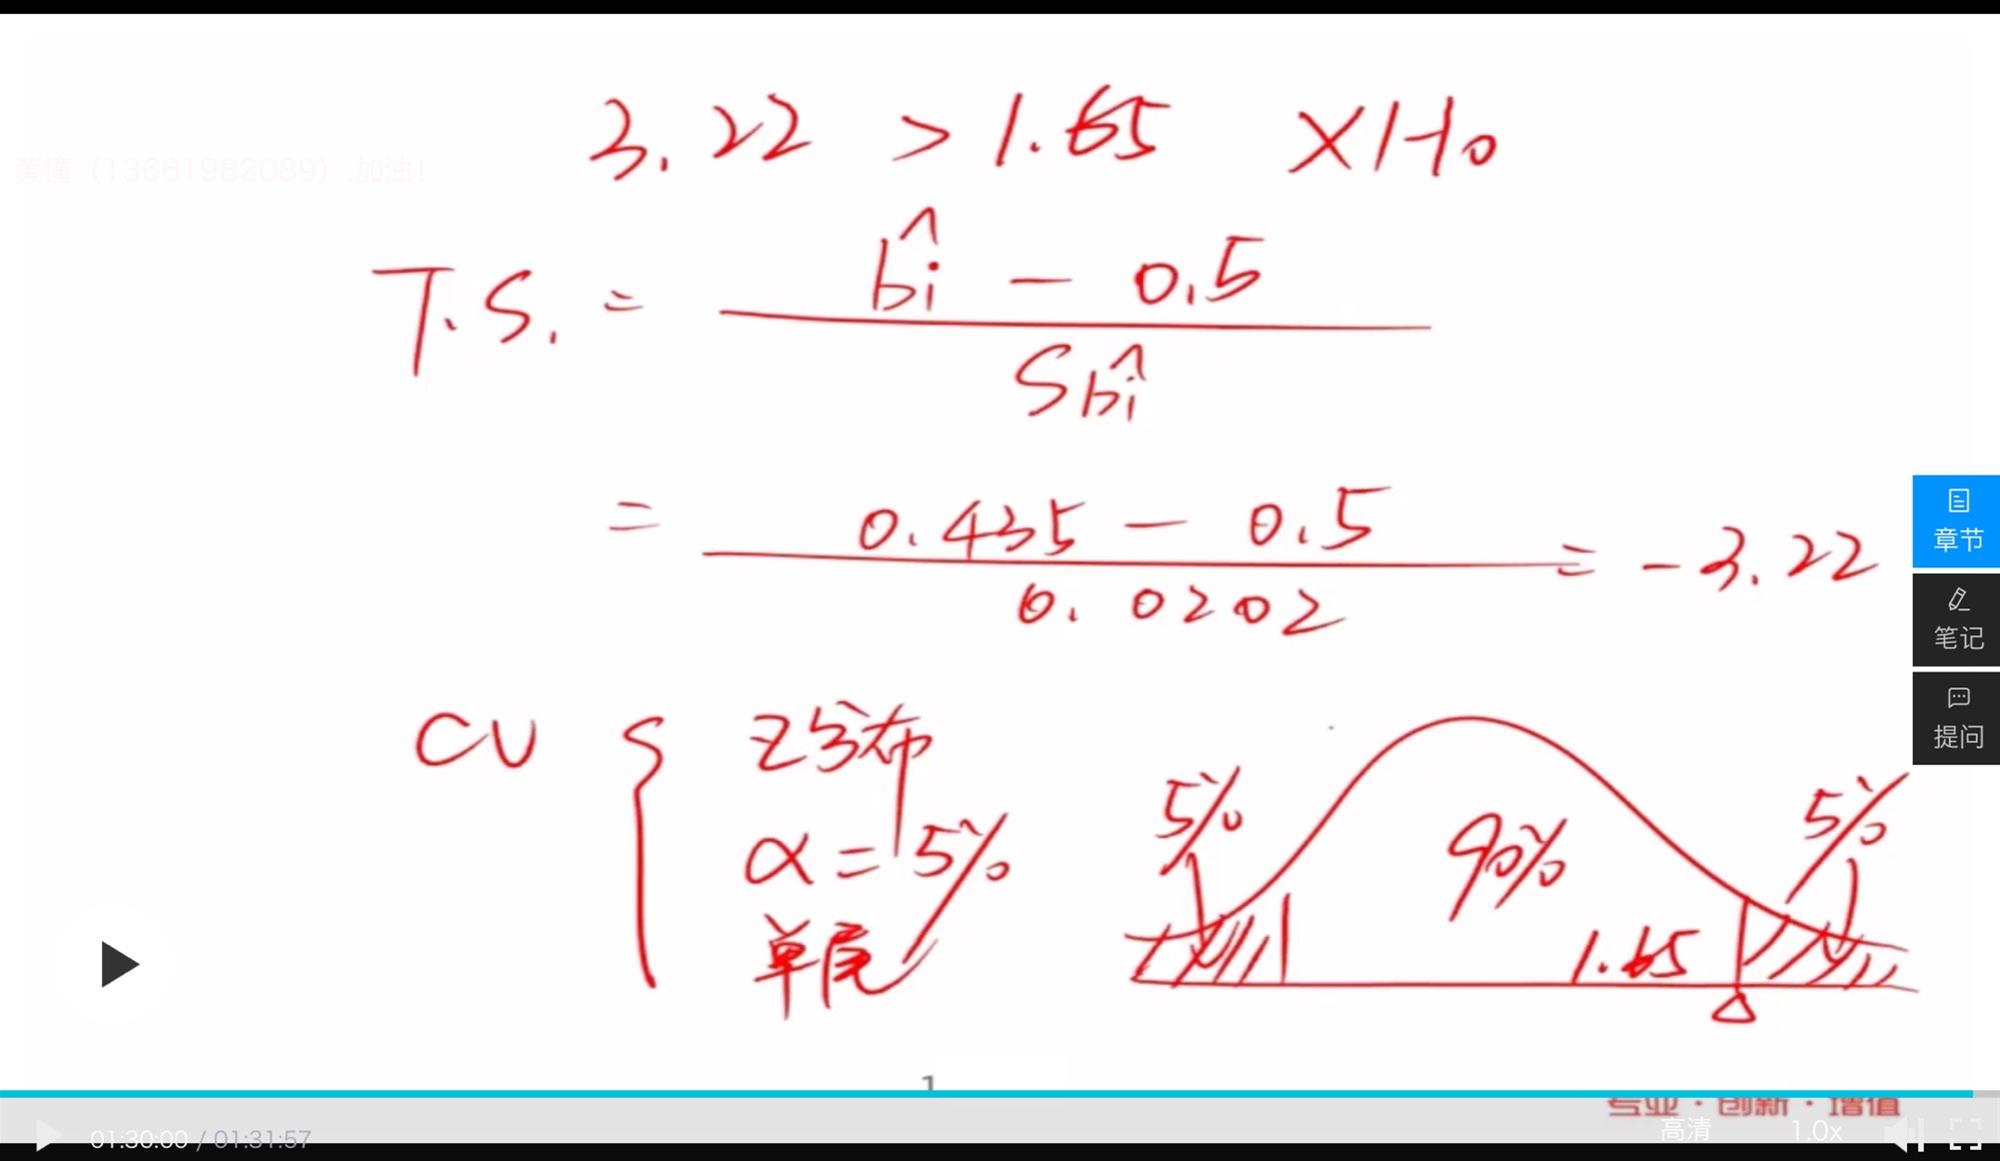 3.22 > 1.65 XH₀
黄憧（13661982089）,加油！
T.S. = (b̂i - 0.5) / Sb̂i
= (0.435 - 0.5) / 0.0202 = -3.22
章节
笔记
提问
CV { Z分布
α = 5%
单尾
5% 90% 5%
1.65
1
专业·创新·增值
01:30:00 / 01:31:57 高清 1.0x